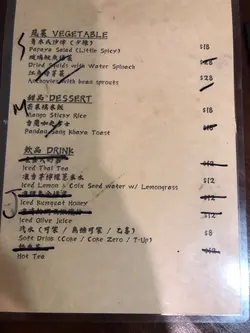 蔬菜 VEGETABLE
青木瓜沙律 (少辣)
Papaya Salad (Little Spicy) $18
Dried Squids with Water Spinach $28
Anchovies with bean sprouts $28
甜品 DESSERT
芒果糯米飯
Mango Sticky Rice $18
Pandan Sang Khaya Toast $18
飲品 DRINK
Iced Thai Tea
Iced Lemon & Coix Seed Water w/ Lemongrass $12
Iced Kumquat Honey
Iced Olive Juice $12
汽水 (可樂 / 無糖可樂 / 七喜)
Soft Drink (Coke / Coke Zero / 7-Up) $8
Hot Tea